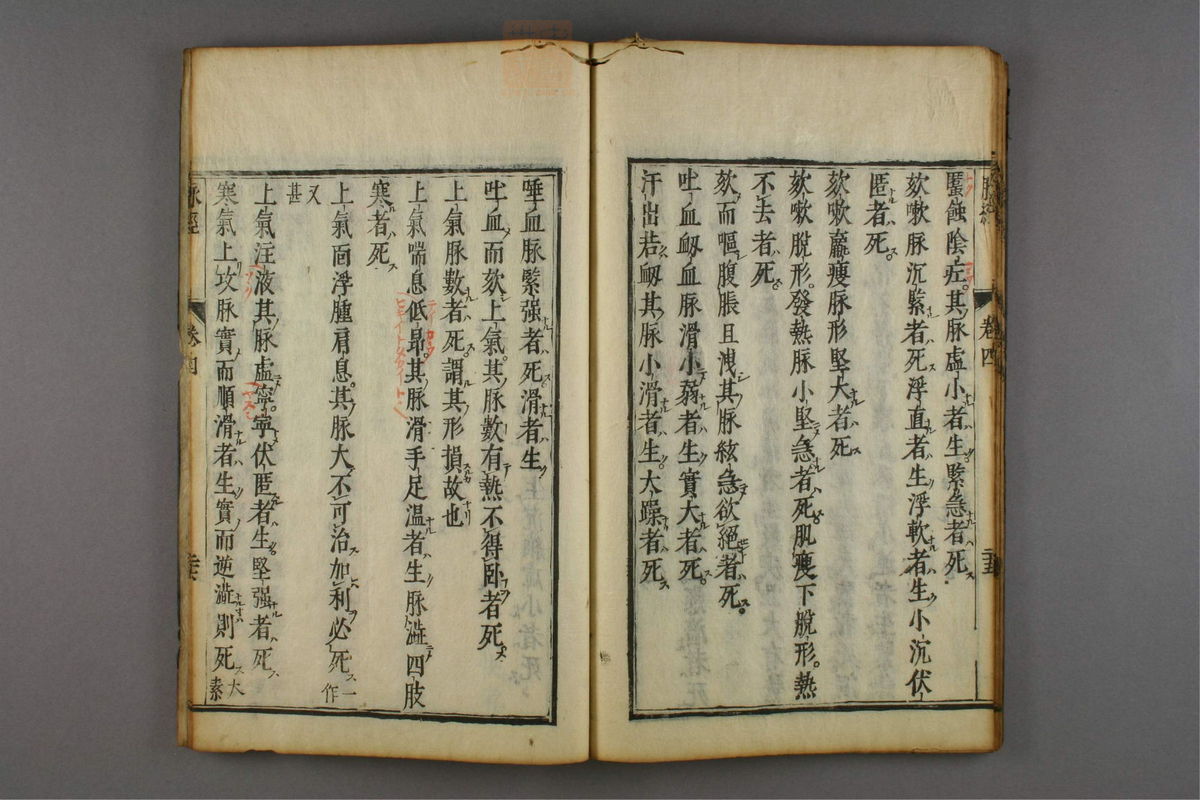 䘌蝕陰疘其脉虛小者生緊急者死
欬嗽脉沉緊者死浮直者生浮軟者生小沉伏
匿者死
欬嗽羸瘦脉形堅大者死
欬嗽脫形發熱脉小堅急者死肌瘦下脫形熱
不去者死
欬而嘔腹脹且泄其脉絃急欲絕者死
吐血衂血脉滑小弱者生實大者死
汗出若衂其脉小滑者生大躁者死
唾血脉緊强者死滑者生
吐血而欬上氣其脉數有熱不得臥者死
上氣脉數者死謂其形損故也
上氣喘息低昂其脉滑手足温者生脉澁四肢
寒者死
上氣面浮腫肩息其脉大不可治加利必死一作
又甚
上氣注液其脉虛寧寧伏匿者生堅强者死
寒氣上攻脉實而順滑者生實而逆澁則死太素
脉經
卷四